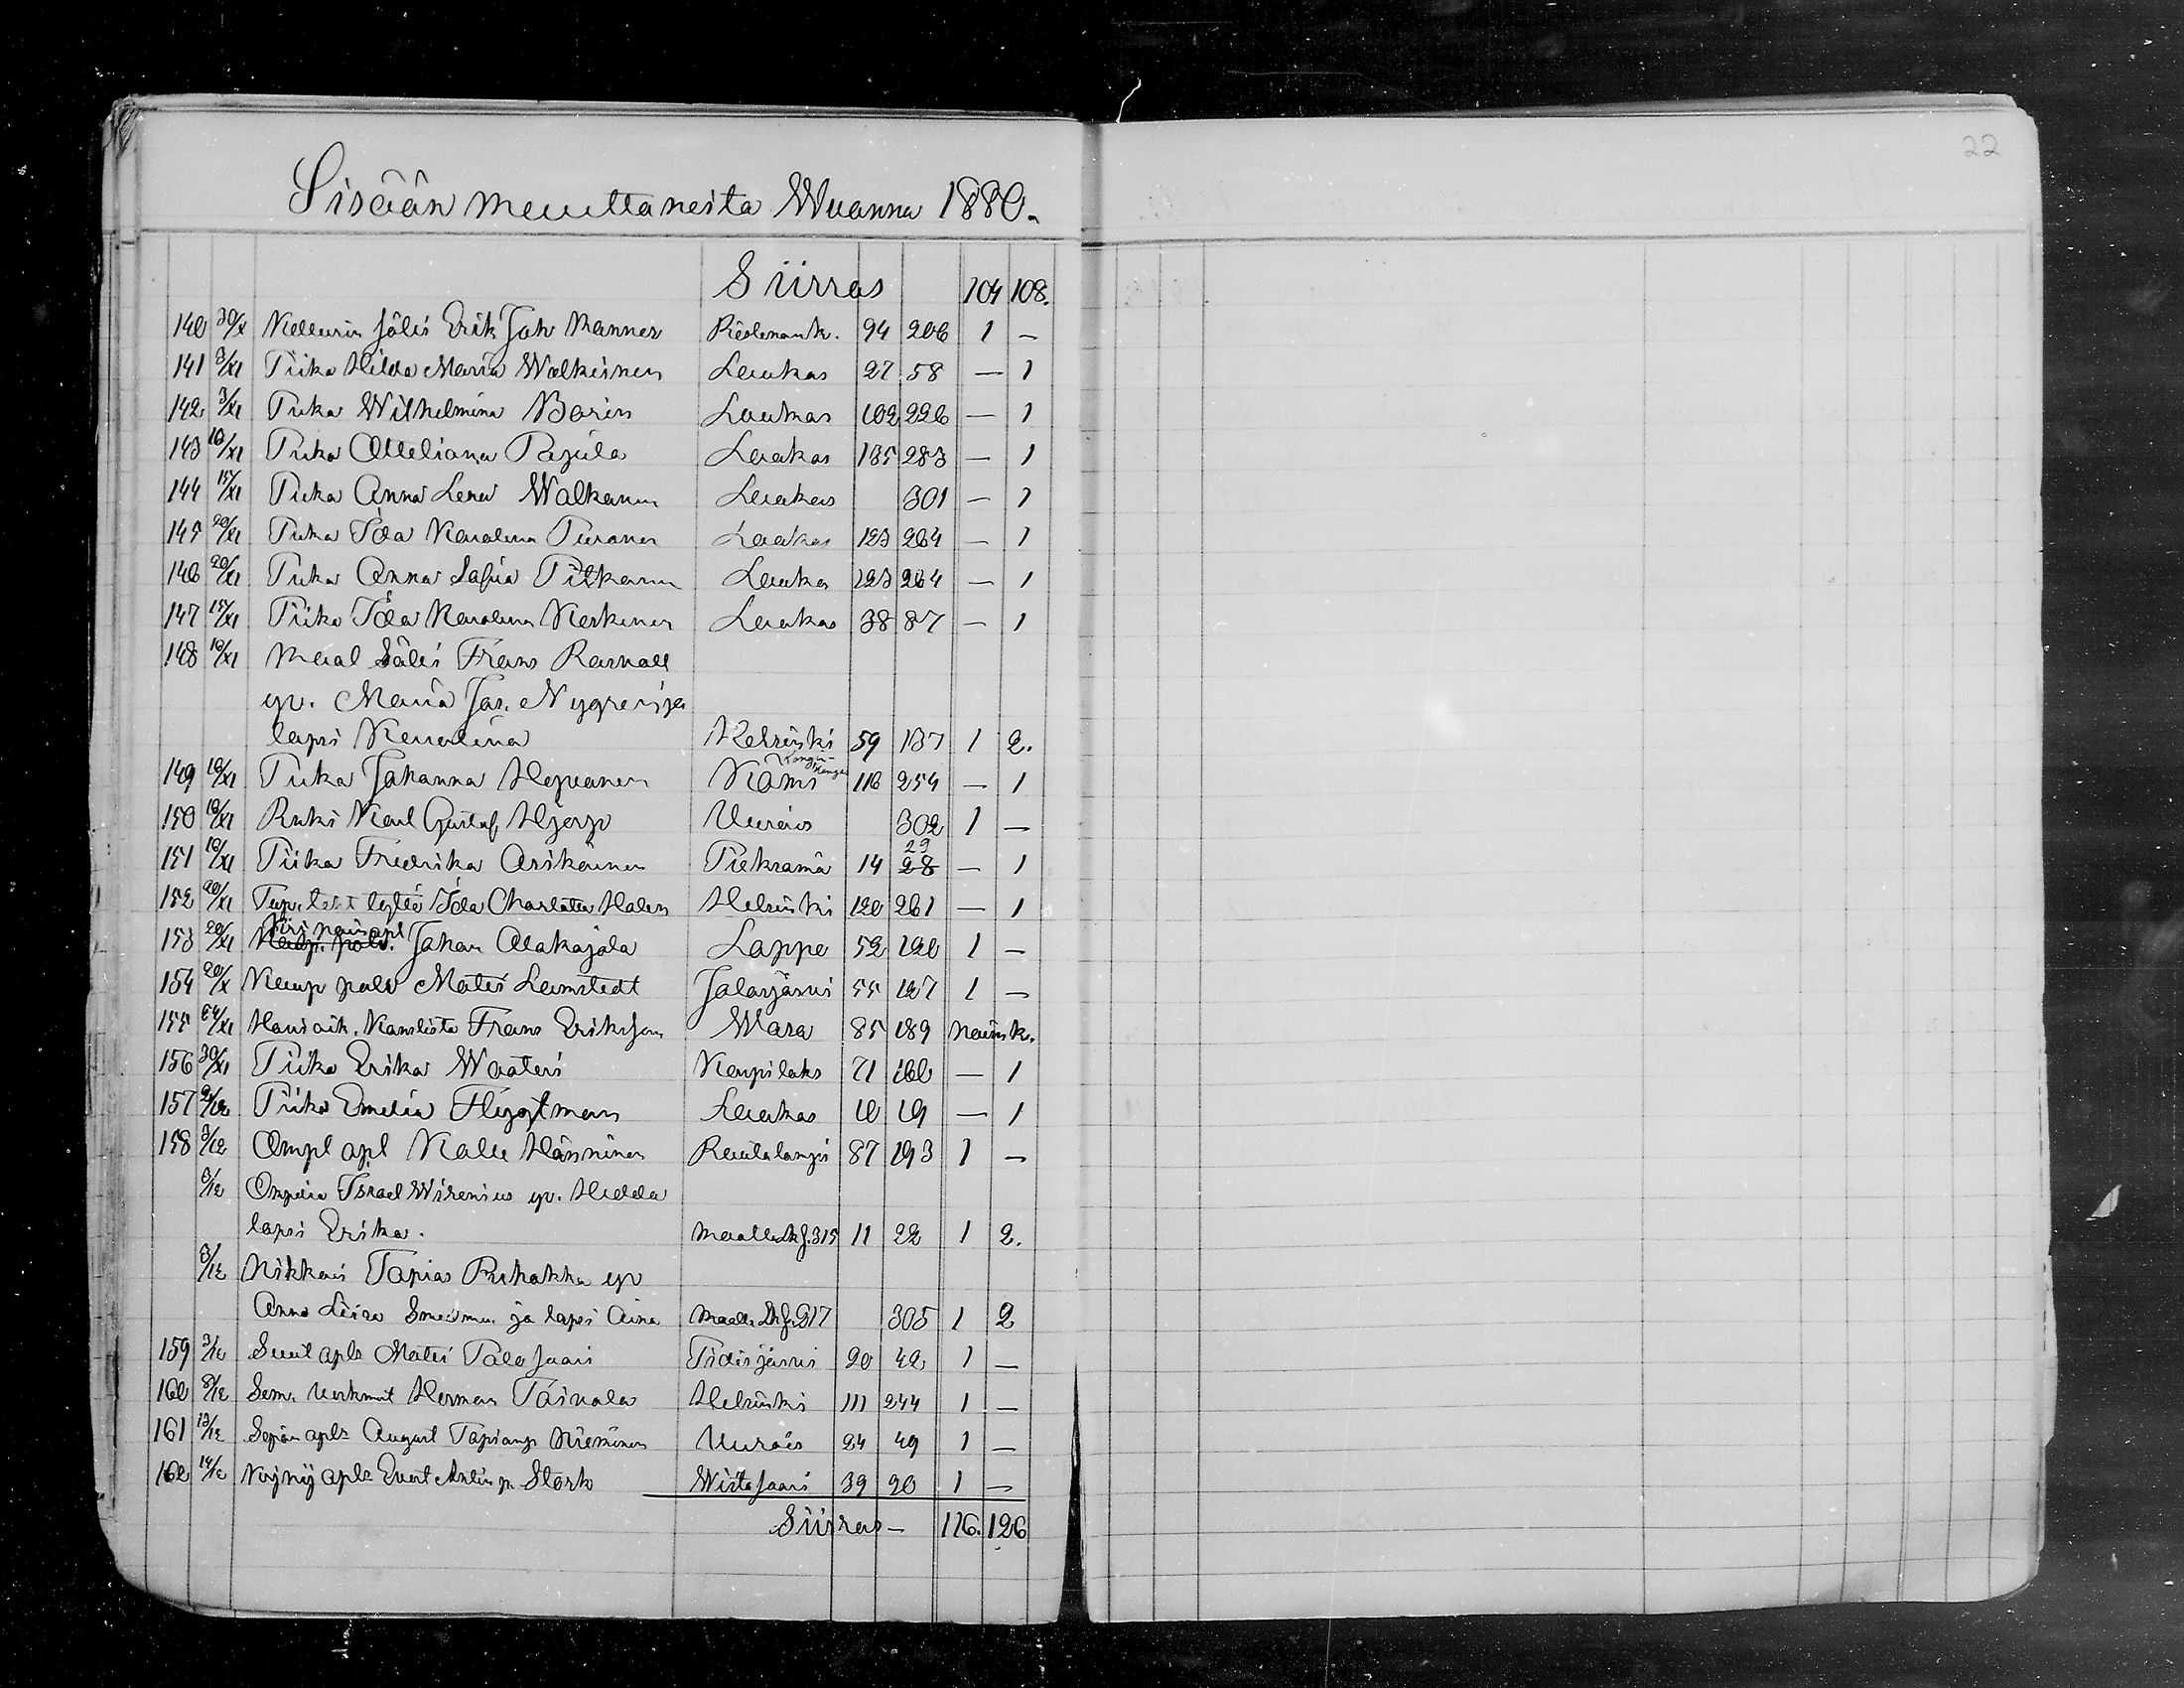 22
Sisään muuttaneita Wuonna 1880.
Siirros 104 108.
140 30/X Kellurin sälli Erik Joh Manner 94 206 1 —
141 3/XI Piika Hilda Maria Walkeinen Laukas 27 58 — 1
142 3/XI Piika Wilhelmina Borin Laukas 102 226 — 1
143 10/XI Piika Atteliana Pajula Laukas 135 283 — 1
144 15/XI Piika Anna Lena Walkonen Laukas 301 — 1
145 20/XI Piika Ida Karolina Turanen Laukas 123 264 — 1
146 20/XI Piika Anna Sofiia Pitkanen Laukas 123 264 — 1
147 15/XI Piika Ida Karolina Kerkinen Laukas 38 87 — 1
148 16/XI Maal Sälli Frans
vv. Maria Jos. Nygren ja
lapsi Karolina Helsinki 59 137 1 2.
149 16/XI Piika Johanna Hepuanen Kangas 116 254 — 1
150 16/XI Renki Karl Gustaf Hjerp Uurais 302 1 —
29
151 16/XI Piika Fredrika Asikainen Pieksämä 14 28 — 1
152 20/XI tyttö Ida Charlotta Halen Helsinki 120 261 — 1
153 20/XI Kirjanpit apl Kaup. palv. Johan Alakajala Lappo 52 120 1 —
154 20/X Kaup palv Matti Lamstedt Jalasjärvi 55 127 1 —
155 24/XI Kanslista Frans Erikson Wasa 85 189
156 30/XI Piika Erika Waateri Kaupilaks 71 160 — 1
157 2/12 Piika Emelia Flygtman Laukas 10 19 — 1
158 3/12 Ompl apl Kalle Hänninen Rautalampi 87 193 1 —
6/12 Ompelia Israel Wirenius vv. Hedda
lapsi Erika. Maalta Lkf. 315 11 22 1 2.
3/12 Nikkari Tapias Puhakka vv
Anna Liisa ja lapsi Aina Maalta Lkf. 317 305 1 2
159 3/12 Suut apl. Matti Palosaari Pidisjärvi 20 42 1 —
160 8/12 Sem. Herman Toivola Helsinki 111 244 1 —
161 13/12 Sepän apl. August Tapianp Nieminen Uurais 24 49 1 —
162 14/12 apl. Evert Antinp. Stork Wiitasaari 39 90 1 —
Siirros— 116. 126